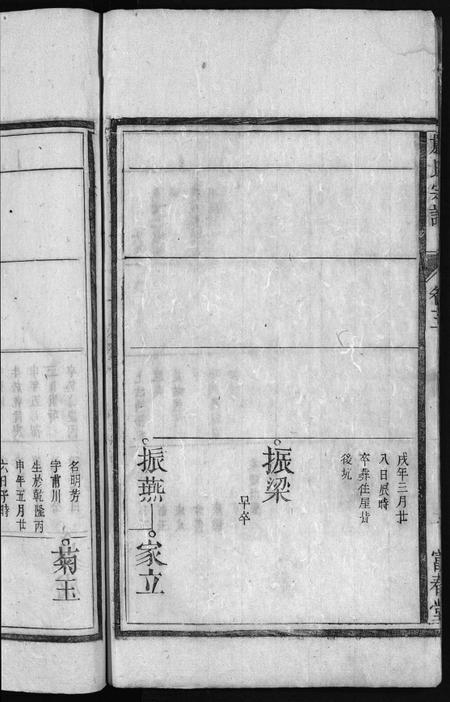 宗譜
卷十三
富春堂
戌年三月廿
八日辰時
卒葬住屋背
後坑
振梁
早卒
振燕 家立
菊玉
名明芳
字甫川
生於乾隆丙
申年五月廿
六日子時